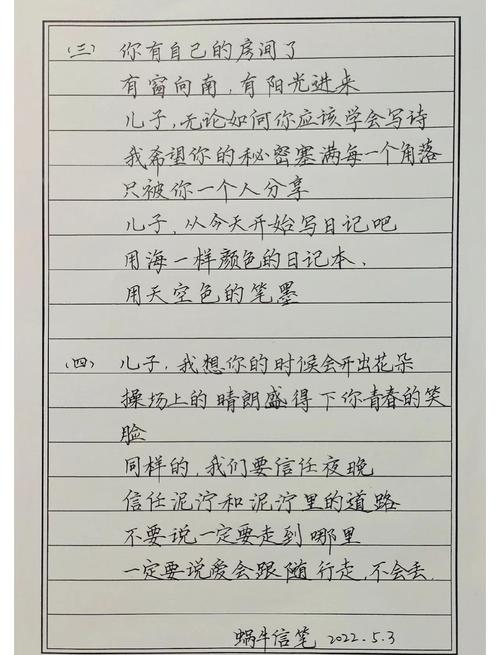 （三） 你有自己的房间了
有窗向南，有阳光进来
儿子，无论如何你应该学会写诗
我希望你的秘密塞满每一个角落
只被你一个人分享
儿子，从今天开始写日记吧
用海一样颜色的日记本.
用天空色的笔墨
（四） 儿子，我想你的时候会开出花朵
操场上的晴朗盛得下你青春的笑
脸
同样的，我们要信任夜晚
信任泥泞和泥泞里的道路
不要说一定要走到哪里
一定要说爱会跟随行走，不会丢.
蜗牛信笔 2022.5.3